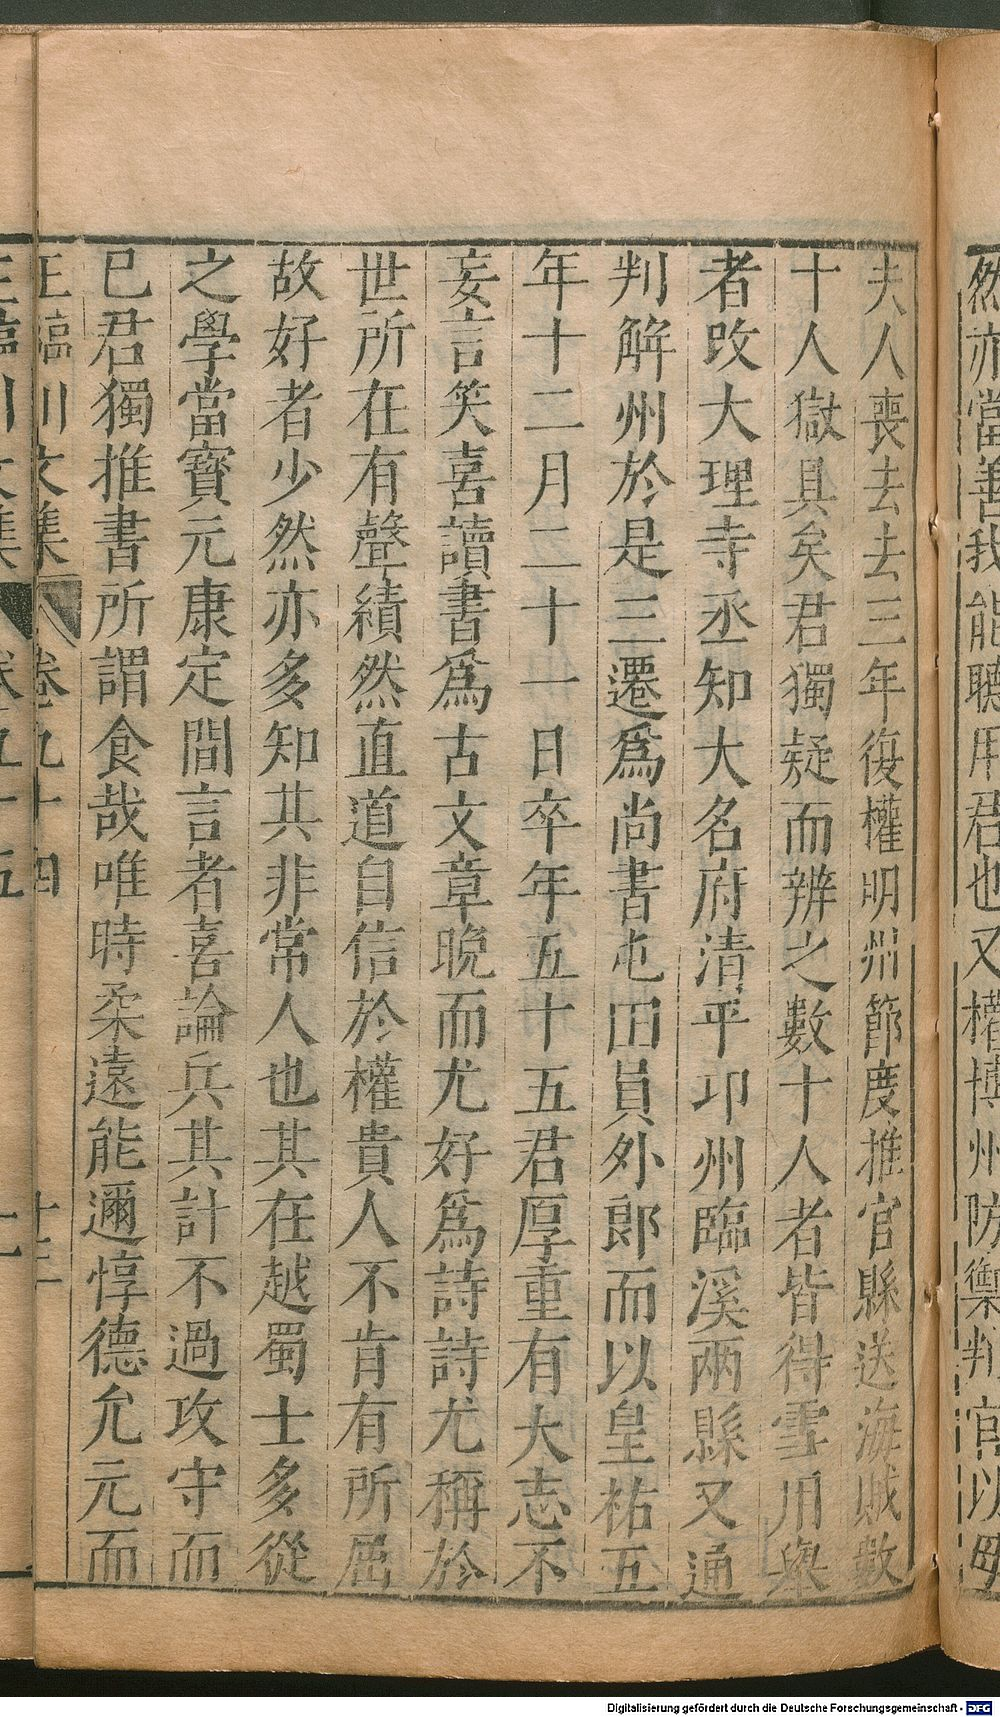 然亦當善我能聽用君也又權博州防禦判官以母
夫人喪去去三年復權明州節度推官縣送海賊數
十人獄具矣君獨疑而辨之數十人者皆得雪用舉
者改大理寺丞知大名府清平邛州臨溪兩縣又通
判解州於是三遷爲尚書屯田員外郎而以皇祐五
年十二月二十一日卒年五十五君厚重有大志不
妄言笑喜讀書爲古文章晚而尤好爲詩詩尤稱於
世所在有聲績然直道自信於權貴人不肯有所屈
故好者少然亦多知其非常人也其在越蜀士多從
之學當寶元康定間言者喜論兵其計不過攻守而
已君獨推書所謂食哉唯時柔遠能邇惇德允元而
王臨川文集 卷九十四 十三
Digitalisierung gefördert durch die Deutsche Forschungsgemeinschaft - DFG